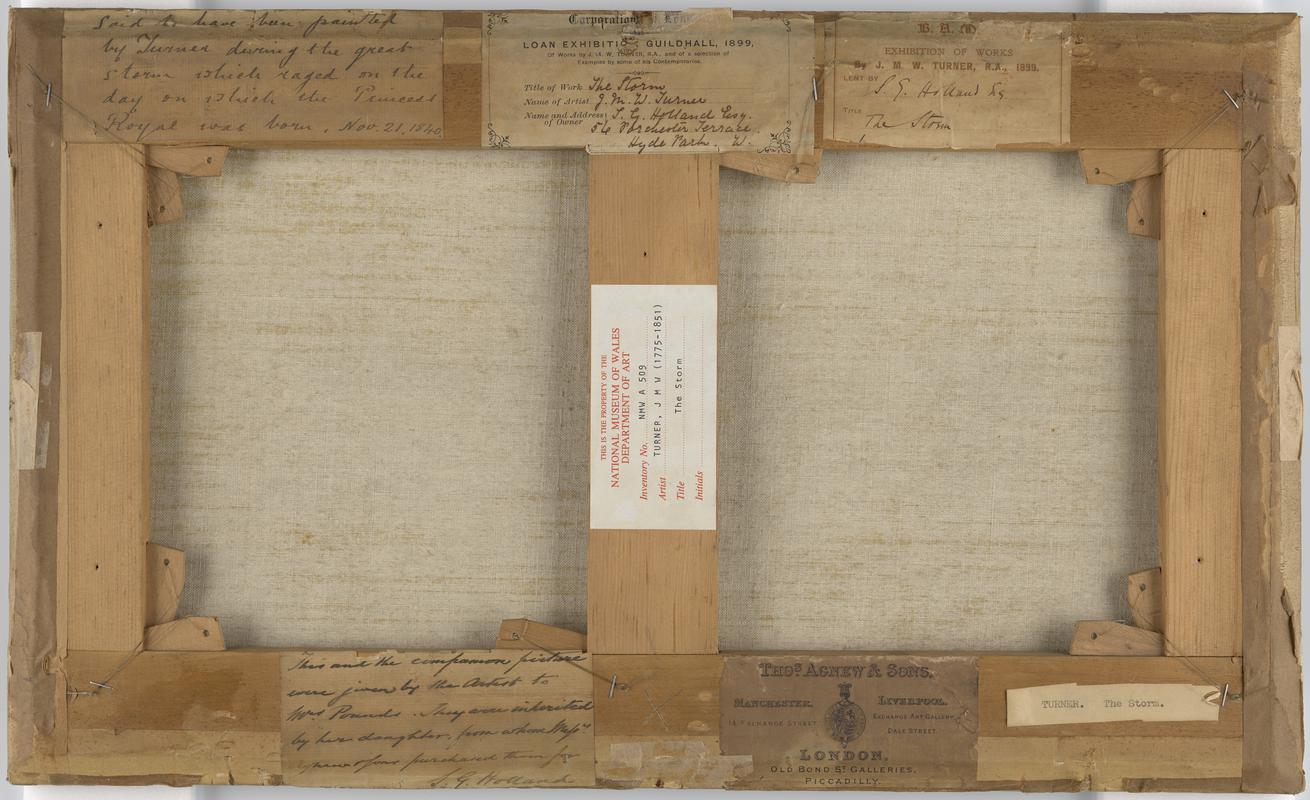 Said to have been painted
by Turner during the great
storm which raged on the
day on which the Princess
Royal was born, Nov. 21, 1840.
Corporation of London
LOAN EXHIBITION GUILDHALL, 1899,
Of Works by J. M. W. TURNER, R.A., and of a selection of
Examples by some of his Contemporaries.
Title of Work The Storm
Name of Artist J. M. W. Turner
Name and Address of Owner S. G. Holland Esq.
56 Porchester Terrace
Hyde Park. W.
EXHIBITION OF WORKS
By J. M. W. TURNER, R.A., 1899.
LENT BY
S. G. Holland Esq
TITLE
The Storm
THIS IS THE PROPERTY OF THE
NATIONAL MUSEUM OF WALES
DEPARTMENT OF ART
Inventory No. NMW A 509
Artist TURNER, J M W (1775-1851)
Title The Storm
Initials
This and the companion picture
were given by the Artist to
Mrs Pounds. They were inherited
by her daughter, from whom Messrs
purchased them for
S. G. Holland
THOS. AGNEW & SONS.
MANCHESTER.
14 EXCHANGE STREET
LIVERPOOL.
EXCHANGE ART GALLERY
DALE STREET
LONDON.
OLD BOND ST GALLERIES.
PICCADILLY.
TURNER. The Storm.